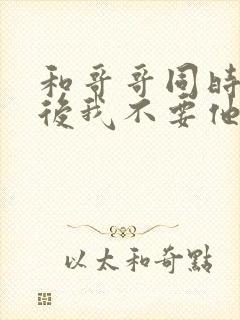 和哥哥同時
後我不要他
以太和奇點